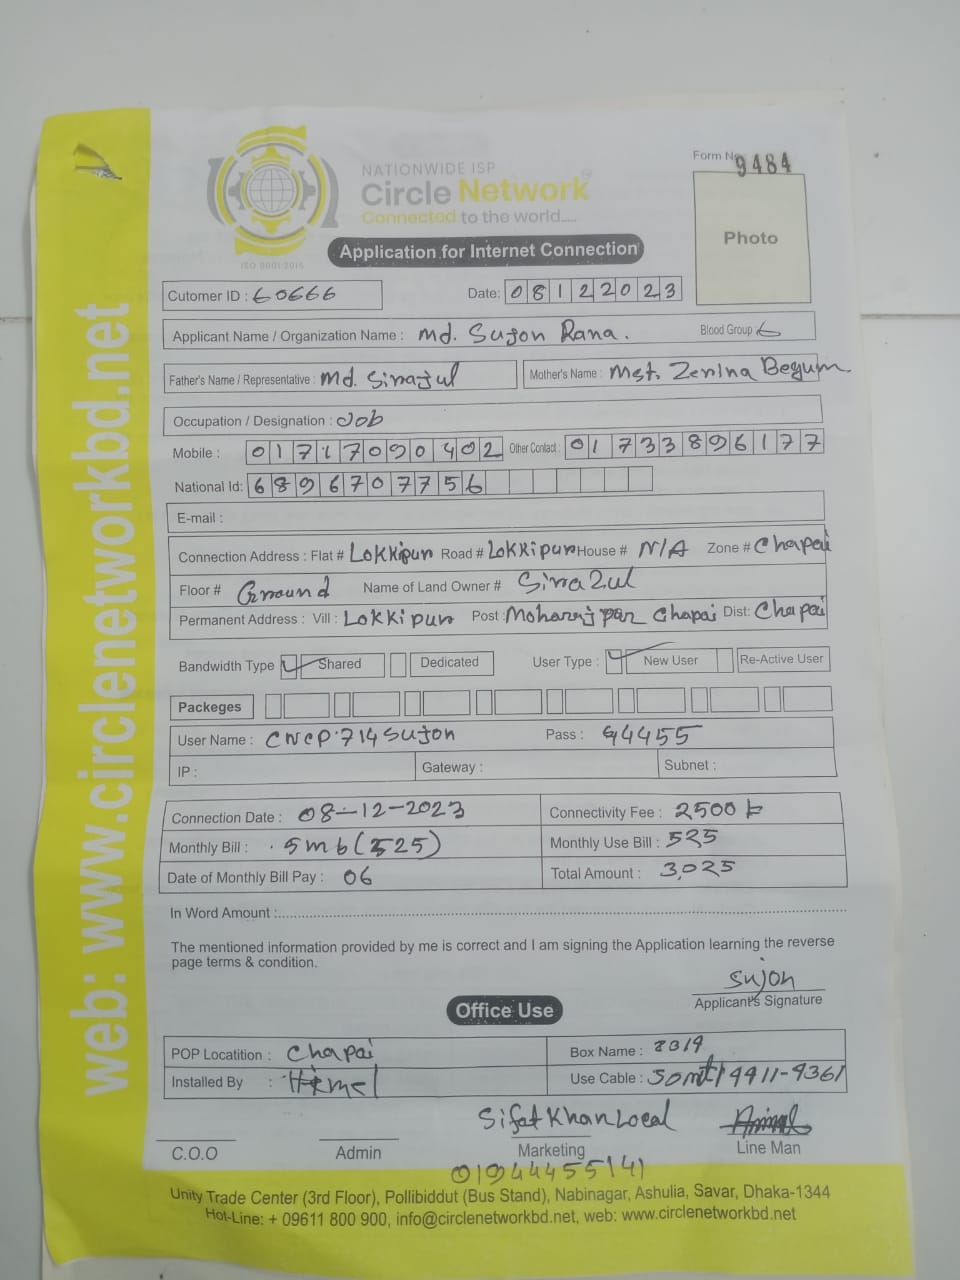 NATIONWIDE ISP
Circle Network
Connected to the world.....
ISO 9001:2015
Form No 9484
Photo
Application for Internet Connection
Cutomer ID : 60666 Date: 08122023
Applicant Name / Organization Name : Md. Sujon Rana. Blood Group
Father's Name / Representative : Md. Sirajul Mother's Name : Mst. Zerina Begum
Occupation / Designation : Job
Mobile : 01717090402 Other Contact : 01733896177
National Id: 6896707756
E-mail :
Connection Address : Flat # Lokkipur Road # Lokkipur House # N/A Zone # Chapai
Floor # Ground Name of Land Owner # Sirazul
Permanent Address : Vill : Lokkipur Post : Chapai Dist: Chapai
Bandwidth Type Shared Dedicated User Type : New User Re-Active User
Packeges
User Name : CNCP.714Sujon Pass : 94455
IP : Gateway : Subnet :
Connection Date : 08-12-2023 Connectivity Fee : 2500
Monthly Bill : 5mb(525) Monthly Use Bill : 525
Date of Monthly Bill Pay : 06 Total Amount : 3,025
In Word Amount :
The mentioned information provided by me is correct and I am signing the Application learning the reverse
page terms & condition.
Sujon
Applicant's Signature
Office Use
POP Locatition : Chapai Box Name :
Installed By : Himel Use Cable :
Sifat Khan Local
C.O.O Admin Marketing Line Man
01944455141
Unity Trade Center (3rd Floor), Pollibiddut (Bus Stand), Nabinagar, Ashulia, Savar, Dhaka-1344
Hot-Line: + 09611 800 900, info@circlenetworkbd.net, web: www.circlenetworkbd.net
web: www.circlenetworkbd.net